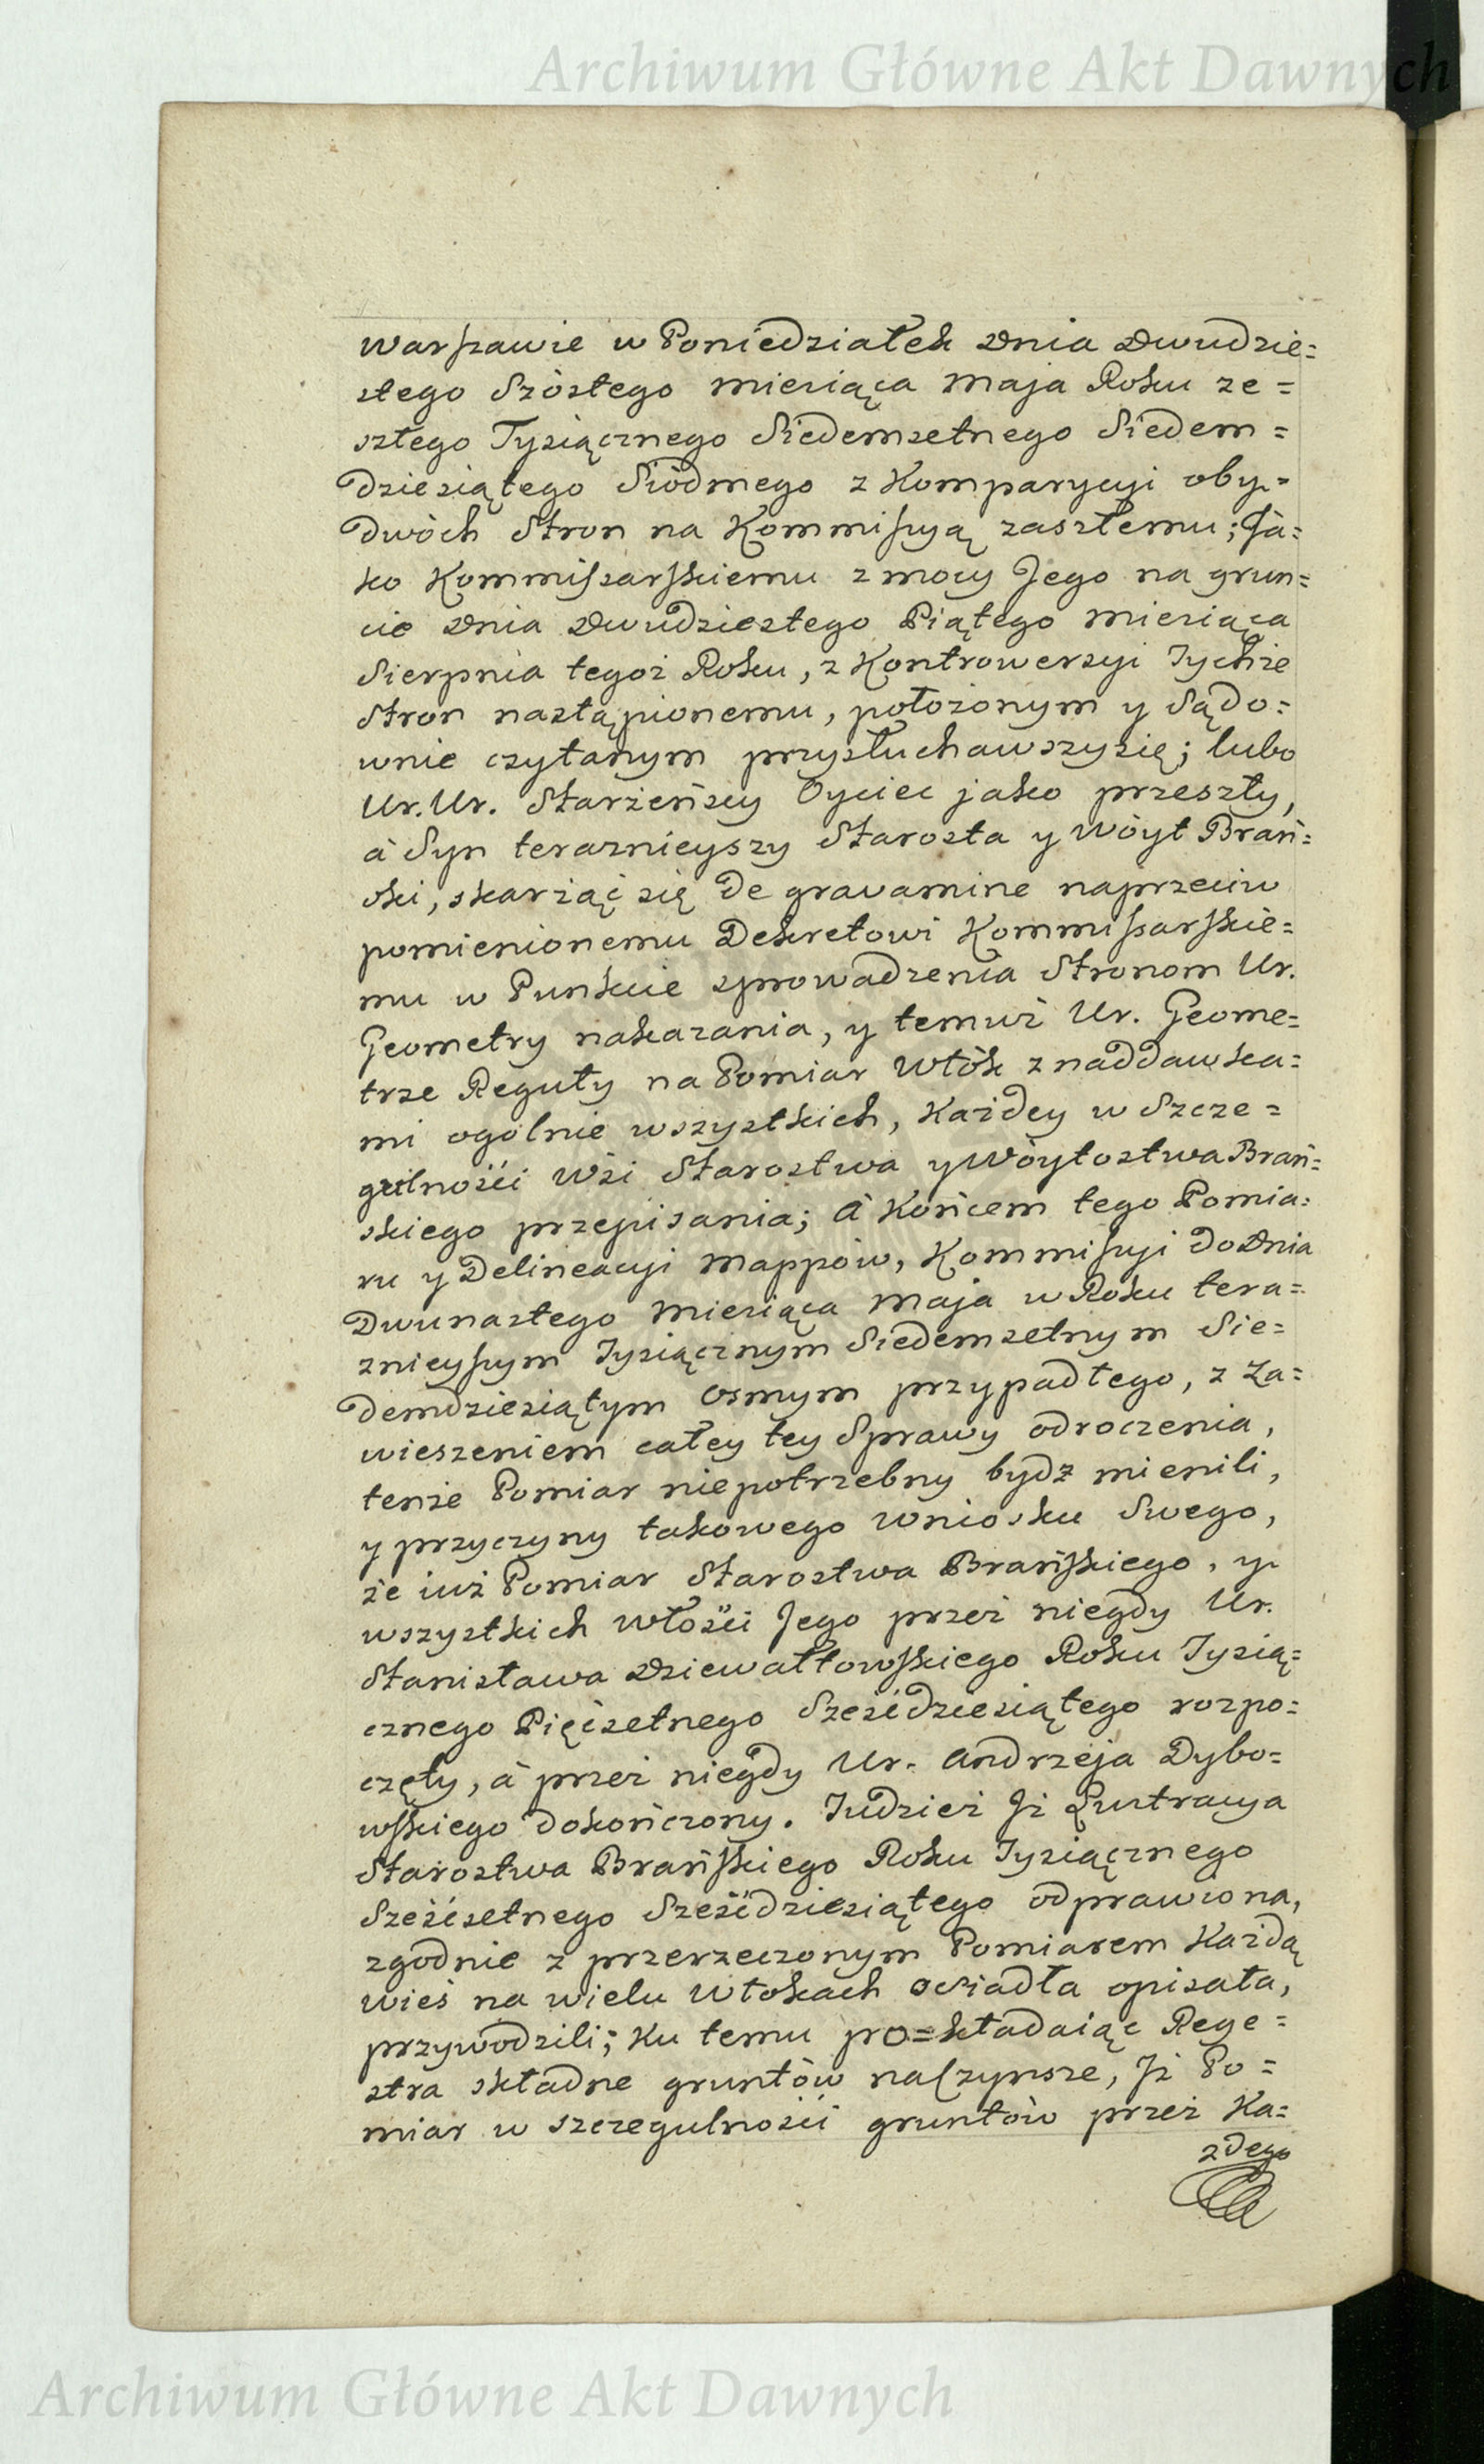 Archiwum Główne Akt Dawnych
Warszawie w Poniedziałek Dnia Dwudzie=
stego Szòstego Miesiąca Maja Roku ze=
szłego Tysiącznego Siedemsetnego Siedem=
dziesiątego Siòdmego z Komparycyi oby=
dwòch Stron na Kommissyą zaszłemu; Ja=
ko Kommissarskiemu z mocy Jego na grun=
cie Dnia Dwudziestego Piątego Miesiąca
Sierpnia tegoż Roku, z Kontrowersyi Tychże
Stron nastąpionemu, położonym y Sądo=
wnie czytanym przysłuchawszysię; lubo
Ur. Ur. Starzeńscy Oyciec jako przeszły,
à Syn teraznieyszy Starosta y Wòyt Brań=
ski, skarżąć się de gravamine naprzeciw
pomienionemu Dekretowi Kommissarskie=
mu w Punkcie sprowadzenia Stronom Ur.
Geometry nakazania, y temuż Ur. Geome=
trze Reguły na Pomiar Włòk z naddawka=
mi ogòlnie wszystkich, Każdey w Szcze=
gulnośći Wsi Starostwa y Wòytostwa Brań=
skiego przepisania; à Końcem tego Pomia=
ru y Delineacyi Mappòw, Kommissyi do Dnia
Dwunastego Miesiąca Maja w Roku tera=
znieyszym Tysiącznym Siedemsetnym Sie=
demdziesiątym Osmym przypadłego, z Za=
wieszeniem całey tey Sprawy odroczenia,
tenże Pomiar niepotrzebny bydź mienili,
y przyczyny takowego Wniosku Swego,
że iuż Pomiar Starostwa Brańskiego, y
wszystkich Włośći Jego przez niegdy Ur.
Stanisława Dziewałtowskiego Roku Tysią=
cznego Pięćsetnego Sześćdziesiątego rozpo=
częty, à przez niegdy Ur. Andrzeja Dybo=
wskiego dokończony. Tudzież Iż Lustracya
Starostwa Brańskiego Roku Tysiącznego
Sześćsetnego Sześćdziesiątego odprawiona,
zgodnie z przerzeczonym Pomiarem Każdą
Wieś na wielu Włokach osiadła opisała,
przywodzili; Ku temu po=kładaiąc Reye=
stra składne gruntòw na Czynsze, Iż Po=
miar w szczegulnośći gruntòw przez Ka=
żdego
Archiwum Główne Akt Dawnych